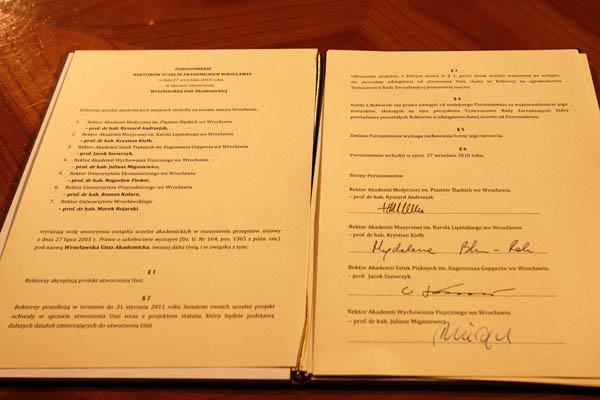 POROZUMIENIE
REKTORÓW UCZELNI AKADEMICKICH WROCŁAWIA
z dnia 27 września 2010 roku
w sprawie utworzenia
Wrocławskiej Unii Akademickiej
Rektorzy uczelni akademickich mających siedzibę na terenie miasta Wrocławia:
1. Rektor Akademii Medycznej im. Piastów Śląskich we Wrocławiu
– prof. dr hab. Ryszard Andrzejak,
2. Rektor Akademii Muzycznej im. Karola Lipińskiego we Wrocławiu
– prof. dr hab. Krystian Kiełb,
3. Rektor Akademii Sztuk Pięknych im. Eugeniusza Gepperta we Wrocławiu
– prof. Jacek Szewczyk,
4. Rektor Akademii Wychowania Fizycznego we Wrocławiu
– prof. dr hab. Juliusz Migasiewicz,
5. Rektor Uniwersytetu Ekonomicznego we Wrocławiu
– prof. dr hab. Bogusław Fiedor,
6. Rektor Uniwersytetu Przyrodniczego we Wrocławiu
– prof. dr hab. Roman Kołacz,
7. Rektor Uniwersytetu Wrocławskiego
– prof. dr hab. Marek Bojarski
wyrażają wolę utworzenia związku uczelni akademickich w rozumieniu przepisów ustawy
z dnia 27 lipca 2005 r. Prawo o szkolnictwie wyższym (Dz. U. Nr 164, poz. 1365 z późn. zm.)
pod nazwą Wrocławska Unia Akademicka, zwanej dalej Unią, i w związku z tym:
§ 1
Rektorzy akceptują projekt utworzenia Unii.
§ 2
Rektorzy przedłożą w terminie do 31 stycznia 2011 roku Senatom swoich uczelni projekt
uchwały w sprawie utworzenia Unii wraz z projektem statutu, który będzie podstawą
dalszych działań zmierzających do utworzenia Unii.
§ 3
Odrzucenie projektu, o którym mowa w § 1, przez Senat uczelni wskazanej na wstępie,
nie powoduje odstąpienia od utworzenia Unii, chyba że Rektorzy na zgromadzeniu
Tymczasowej Rady Zarządzającej postanowią inaczej.
§ 4
Każdy z Rektorów ma prawo odstąpić od niniejszego Porozumienia za wypowiedzeniem jego
warunków, złożonym na ręce prezydenta Tymczasowej Rady Zarządzającej, który
powiadamia pozostałych Rektorów o odstąpieniu danej uczelni od Porozumienia.
§ 5
Zmiana Porozumienia wymaga zachowania formy jego zawarcia.
§ 6
Porozumienie wchodzi w życie 27 września 2010 roku.
Strony Porozumienia:
Rektor Akademii Medycznej im. Piastów Śląskich we Wrocławiu
– prof. dr hab. Ryszard Andrzejak
Rektor Akademii Muzycznej im. Karola Lipińskiego we Wrocławiu
– prof. dr hab. Krystian Kiełb
Magdalena
Rektor Akademii Sztuk Pięknych im. Eugeniusza Gepperta we Wrocławiu
– prof. Jacek Szewczyk
Rektor Akademii Wychowania Fizycznego we Wrocławiu
– prof. dr hab. Juliusz Migasiewicz